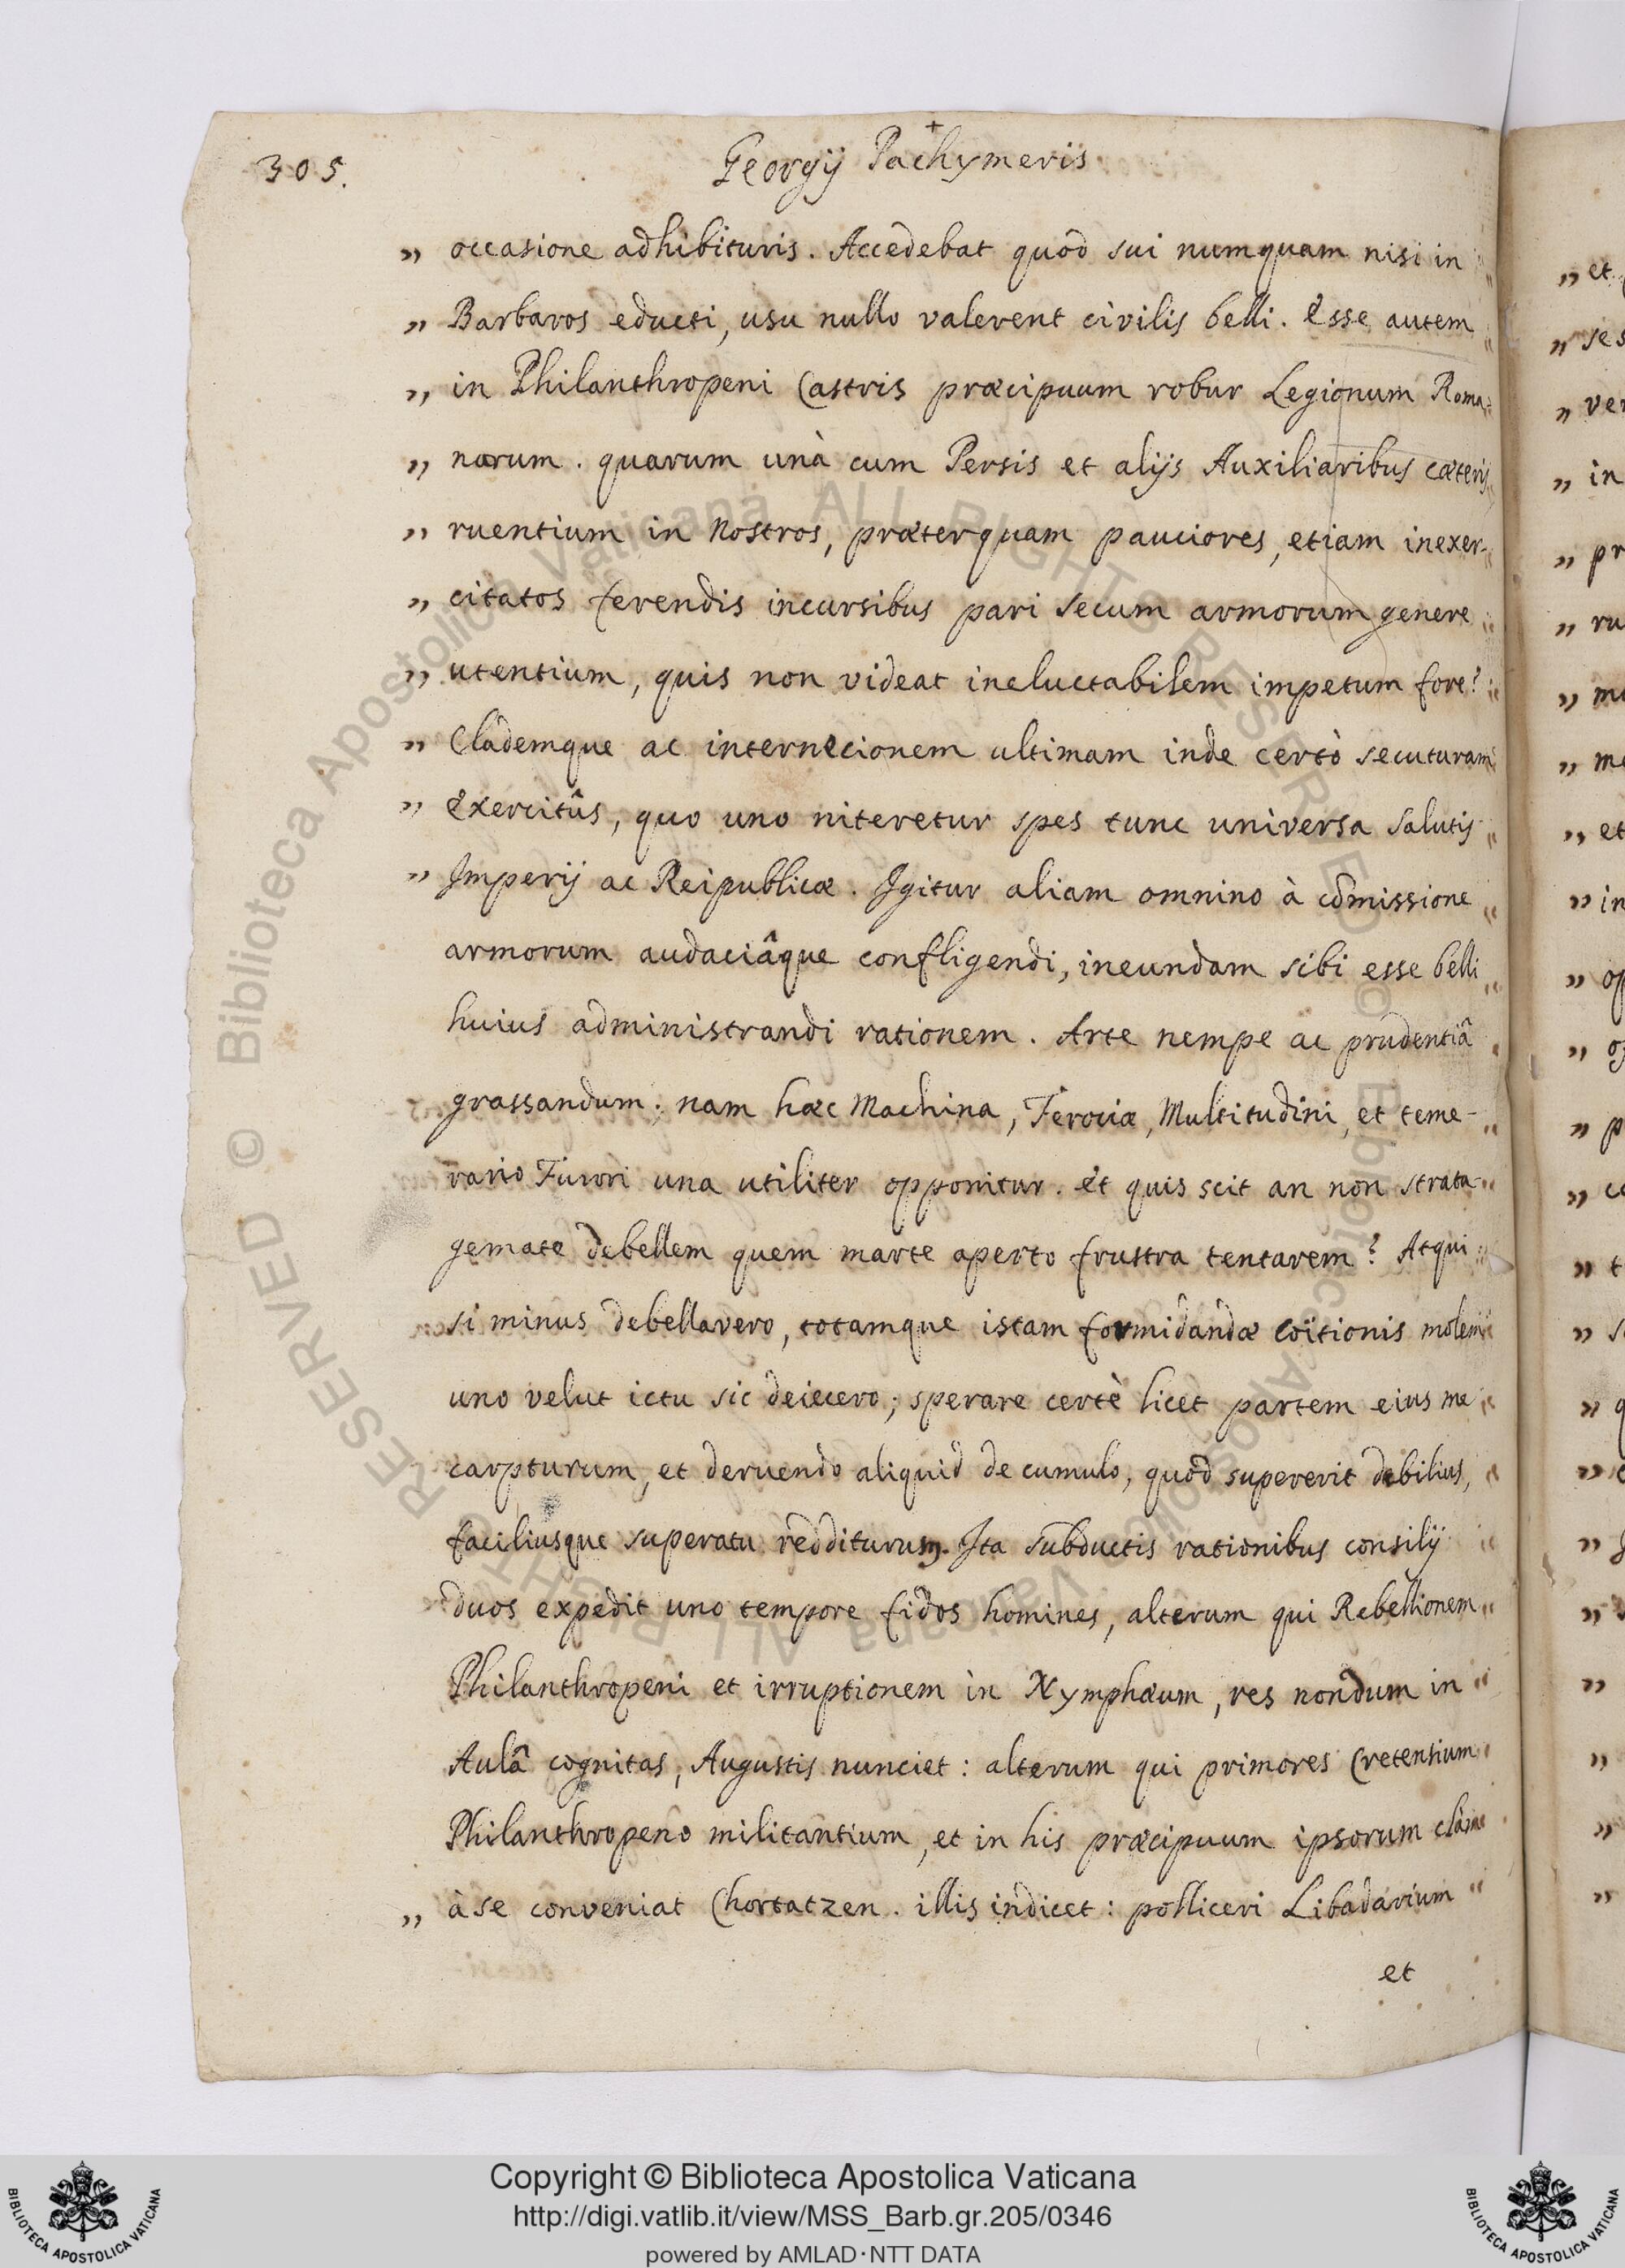 305.
Georgÿ Pachymeris
„ occasione adhibituris. Accedebat quod sui numquam nisi in
„ Barbaros educti, usu nullo valerent civilis belli. Esse autem
„ in Philanthropeni Castris præcipuum robur Legionum Roma-
„ narum. quarum unà cum Persis et alijs Auxiliaribus cæteris
„ ruentium in Nostros, præterquam pauciores, etiam inexer-
„ citatos ferendis incursibus pari secum armorum genere
„ utentium, quis non videat ineluctabilem impetum fore?
„ Cladem­que ac internecionem ultimam inde certò secuturam
„ Exercitûs, quo uno niteretur spes tunc universa salutis
„ Imperij ac Reipublicæ. Igitur aliam omnino à cōmissione
armorum audaciâque confligendi, ineundam sibi esse belli
huius administrandi rationem. Arte nempe ac prudentiâ
grassandum; nam hæc Machina, Ferociæ, Multitudini, et teme-
rario Furori una utiliter opponitur. Et quis scit an non strata-
gemate debellem quem marte aperto frustra tentarem? Atqui
si minus debellavero, totamque istam formidandæ coïtionis molem
uno velut ictu sic deiecero; sperare certè licet partem eius me
carpturum, et deruendo aliquid de cumulo, quod supererit debilius,
faciliusque superatu redditurum. Ita subductis rationibus consilij
duos expedit uno tempore fidos homines, alterum qui Rebellionem
Philanthropeni et irruptionem in Nymphæum, res nondum in
Aulâ cognitas, Augustis nunciet: alterum qui primores Cretensium
Philanthropeno militantium, et in his præcipuum ipsorum clàm
„ à se conveniat Chortatzen. illis indicet: polliceri Libadarium
et
„ et
„ ses
„ ver
„ in
„ pr
„ ru
„ mu
„ me
„ et
„ in
„ op
„ p
„ t
Copyright © Biblioteca Apostolica Vaticana
http://digi.vatlib.it/view/MSS_Barb.gr.205/0346
powered by AMLAD·NTT DATA
BIBLIOTECA APOSTOLICA VATICANA
BIBLIOTECA APOSTOLICA VATICANA
© Biblioteca Apostolica Vaticana ALL RIGHTS RESERVED © Biblioteca Apostolica Vaticana ALL RIGHTS RESERVED